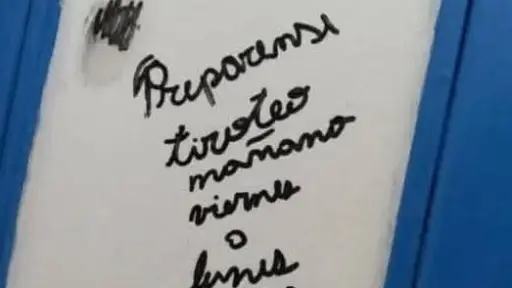 Preparense
tiroteo
mañana
viernes
o
lunes